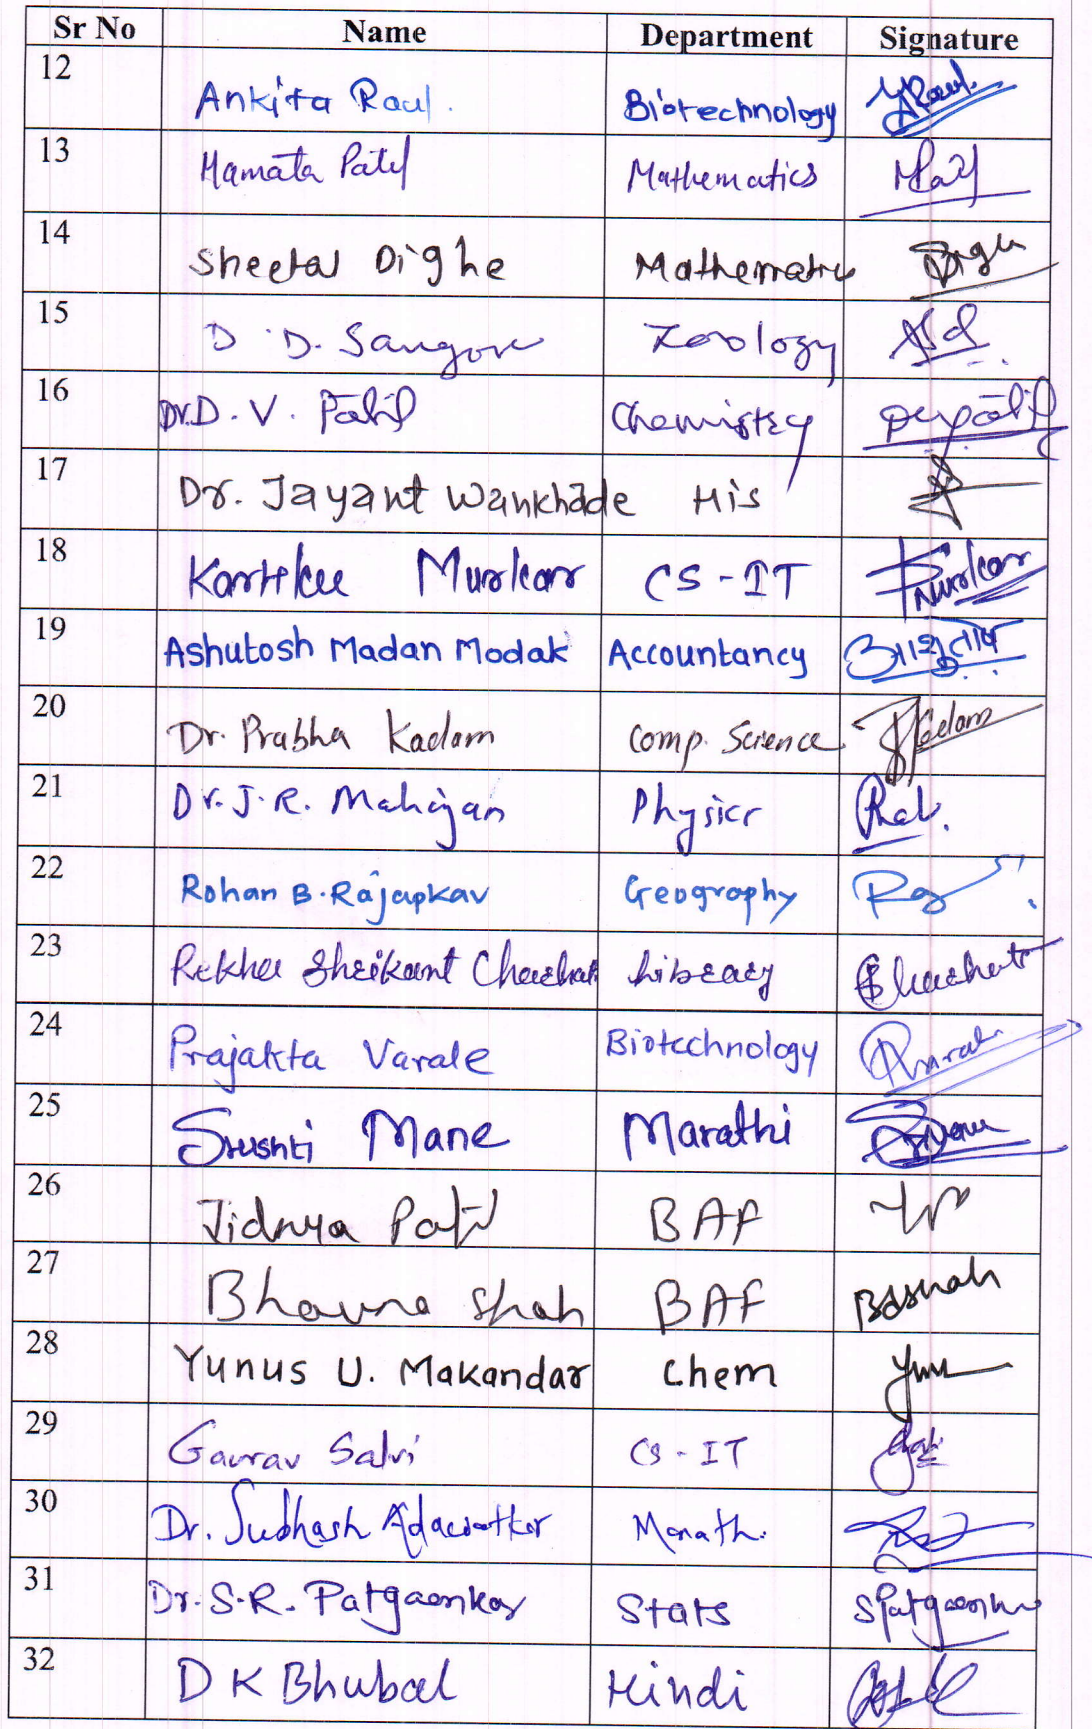 Sr No Name Department Signature
12 Ankita Raul. Biotechnology
13 Mamata Patil Mathematics
14 Sheetal Dighe Mathematics
15 D. D. Sangore Zoology
16 Dr.D. V. Patil Chemistry dvpatil
17 Dr. Jayant Wankhade His
18 Kartikee Murkar CS-IT Murkar
19 Ashutosh Madan Modak Accountancy
20 Dr. Prabha Kadam Comp. Science Kadam
21 Dr. J. R. Mahajan Physics
22 Rohan B. Rajapkar Geography
23 Rekha Shrikant Library
24 Prajakta Varale Biotechnology
25 Srushti Mane Marathi
26 Jidnya Patil BAF
27 Bhavna Shah BAF
28 Yunus U. Makandar Chem
29 Gaurav Salvi CS-IT
30 Dr. Subhash
31 Dr. S.R. Patgaonkar Stats SPatgaonkar
32 D K Bhubal Hindi